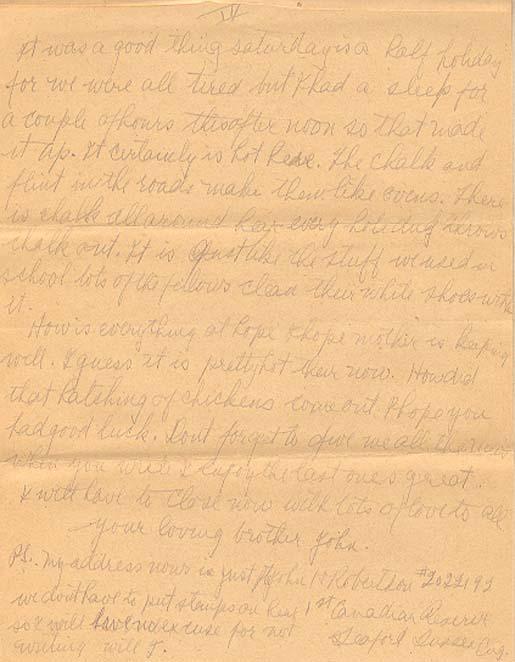 IV
It was a good thing saturday is a half holiday
for we were all tired but I had a sleep for
a couple of hours this after noon so that made
it up. It certainely is hot here. The chalk and
flint in the roads make them like ovens. There
is chalk all around hear every hole dug throws
chalk out. It is Just like the stuff we used in
school lots of the fellows clean their white shoes with
it.
How is everything at hope I hope mother is keeping
well. I guess it is pretty hot their now. How did
that hatching of chickens come out. I hope you
had good luck. Dont forget to give me all the news
when you write I enjoy the last ones great.
I will have to close now with lots of love to all
your loving brother John.
PS. My address now is just John Robertson #2022192
we dont have to put stamps on hear 1st Canadian Reserve
so I will have no excuse for not Seaford Sussex Eng.
writing will I.